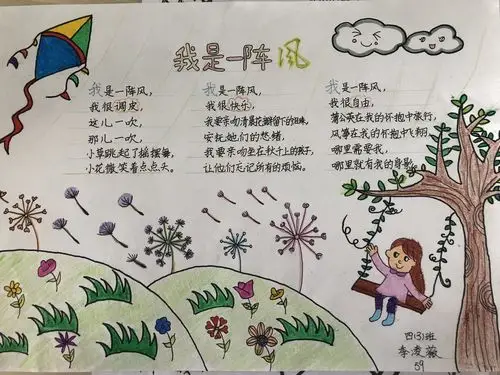 我是一阵风
我是一阵风，
我很调皮，
这儿一吹，
那儿一吹，
小草跳起了摇摆舞，
小花微笑着点点头。
我是一阵风，
我很快乐，
我要亲吻清晨花瓣留下的泪珠，
安抚她们的愁绪，
我要亲吻坐在秋千上的孩子，
让他们忘记所有的烦恼。
我是一阵风，
我很自由，
蒲公英在我的怀抱中旅行，
风筝在我的怀抱中飞翔，
哪里需要我，
哪里就有我的身影。
四(3)班
李凌薇
59